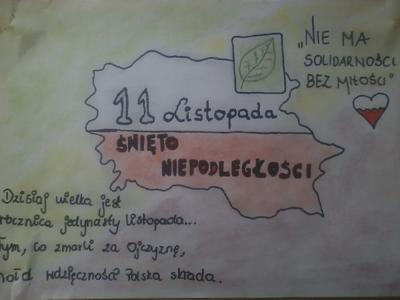 „NIE MA
SOLIDARNOŚCI
BEZ MIŁOŚCI"
11 Listopada
ŚWIĘTO
NIEPODLEGŁOŚCI
Dzisiaj wielka jest
rocznica jedynasty listopada...
Tym, co zmarli za Ojczyznę,
hołd wdzięczności Polska składa.